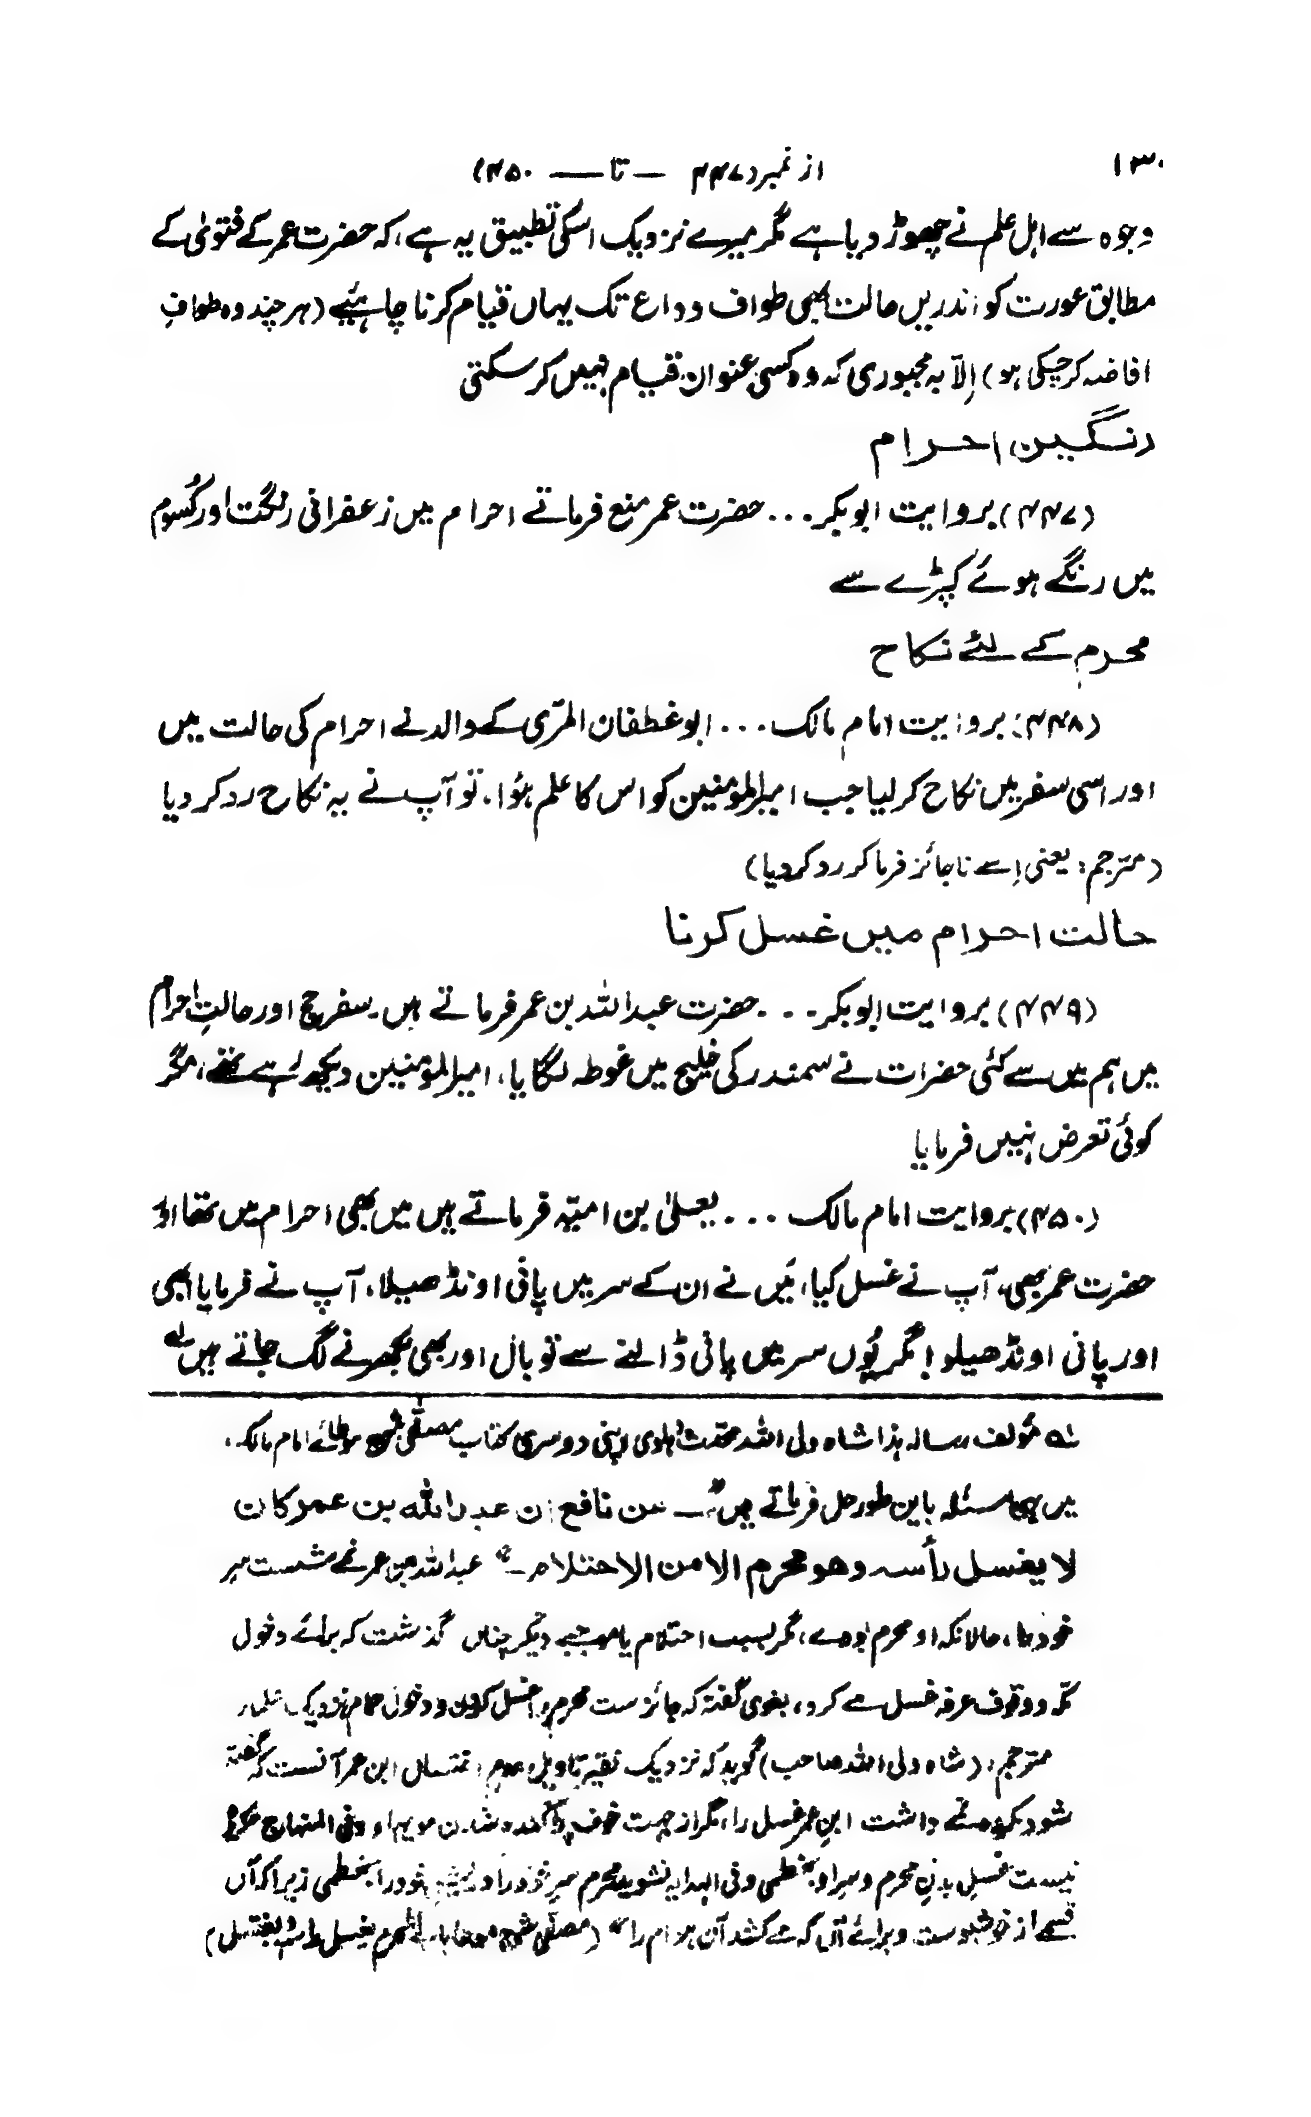 ۱۳۰
از نمبر (۴۴۷ — تا — ۴۵۰)
وجوہ سے اہل علم نے چھوڑ دیا ہے مگر میرے نزدیک اسکی تطبیق یہ ہے، کہ حضرت عمر کے فتویٰ کے
مطابق عورت کو اندریں حالت بھی طواف وداع تک یہاں قیام کرنا چاہیئے (ہر چند وہ طوافِ
افاضہ کر چکی ہو) اِلّا بہ مجبوری کہ وہ کسی عنوان قیام نہیں کر سکتی
رنگین احرام
(۴۴۷) بروایت ابوبکر... حضرت عمر منع فرماتے احرام میں زعفرانی رنگت اور کُسوم
میں رنگے ہوئے کپڑے سے
محرم کے لئے نکاح
(۴۴۸) بروایت امام مالک... ابوغطفان المرّی کے والد نے احرام کی حالت میں
اور اسی سفر میں نکاح کر لیا جب امیرالمؤمنین کو اس کا علم ہؤا، تو آپ نے یہ نکاح رد کر دیا
(مترجم: یعنی اِسے ناجائز فرما کر رد کر دیا)
حالت احرام میں غسل کرنا
(۴۴۹) بروایت ابوبکر... حضرت عبداللہ بن عمر فرماتے ہیں۔ سفر حج اور حالتِ احرام
میں ہم میں سے کئی حضرات نے سمندر کی خلیج میں غوطہ لگایا، امیرالمؤمنین دیکھ رہے تھے، مگر
کوئی تعرض نہیں فرمایا
(۴۵۰) بروایت امام مالک... یعلیٰ بن امیّہ فرماتے ہیں میں بھی احرام میں تھا اور
حضرت عمر بھی، آپ نے غسل کیا، مَیں نے ان کے سر میں پانی اونڈھیلا، آپ نے فرمایا ابھی
اور پانی اونڈھیلو! مگر یُوں سر میں پانی ڈالنے سے تو بال اور بھی بکھرنے لگ جاتے ہیں لہ
لہ مؤلف رسالہ ہذا شاہ ولی اللہ محدث دہلوی اپنی دوسری کتاب مصفّٰی شرح موطائے امام مالک،
میں یہی مسئلہ باین طور حل فرماتے ہیں "— عن نافع ان عبد اللہ بن عمر کان
لا یغسل رأسہ وھو محرم الا من الاحتلام —" عبداللہ بن عمر نمے شست سر
خود را، حالانکہ او محرم بودے، مگر بسبب احتلام یا موجبے دیگر چناں گذشت کہ برائے دخول
مکہ و وقوف عرفہ غسل مے کرد، بغوی گفتہ کہ جائز ست محرم را غسل کردن و دخول حمام نزدیک علماء
مترجم: (شاہ ولی اللہ صاحب) گوید کہ نزدیک فقیر تاویل عدم اغتسال ابن عمر آنست کہ گفتہ
شود مکروہ مے داشت ابن عمر غسل را، مگر از جہت خوف شدن مویہا و وفی المنہاج مکروہ
نیست غسل بدنِ محرم و سر او بخطمی وفی الہدایہ نشوید محرم سرِ خود را و خود را بخطمی زیرا کہ آں
قسمے از خوشبوست و برائے آں کہ مے کشد آن ہوام را" (مصفّٰی شرح موطا باب المحرم یغسل راسہ ویغتسل)